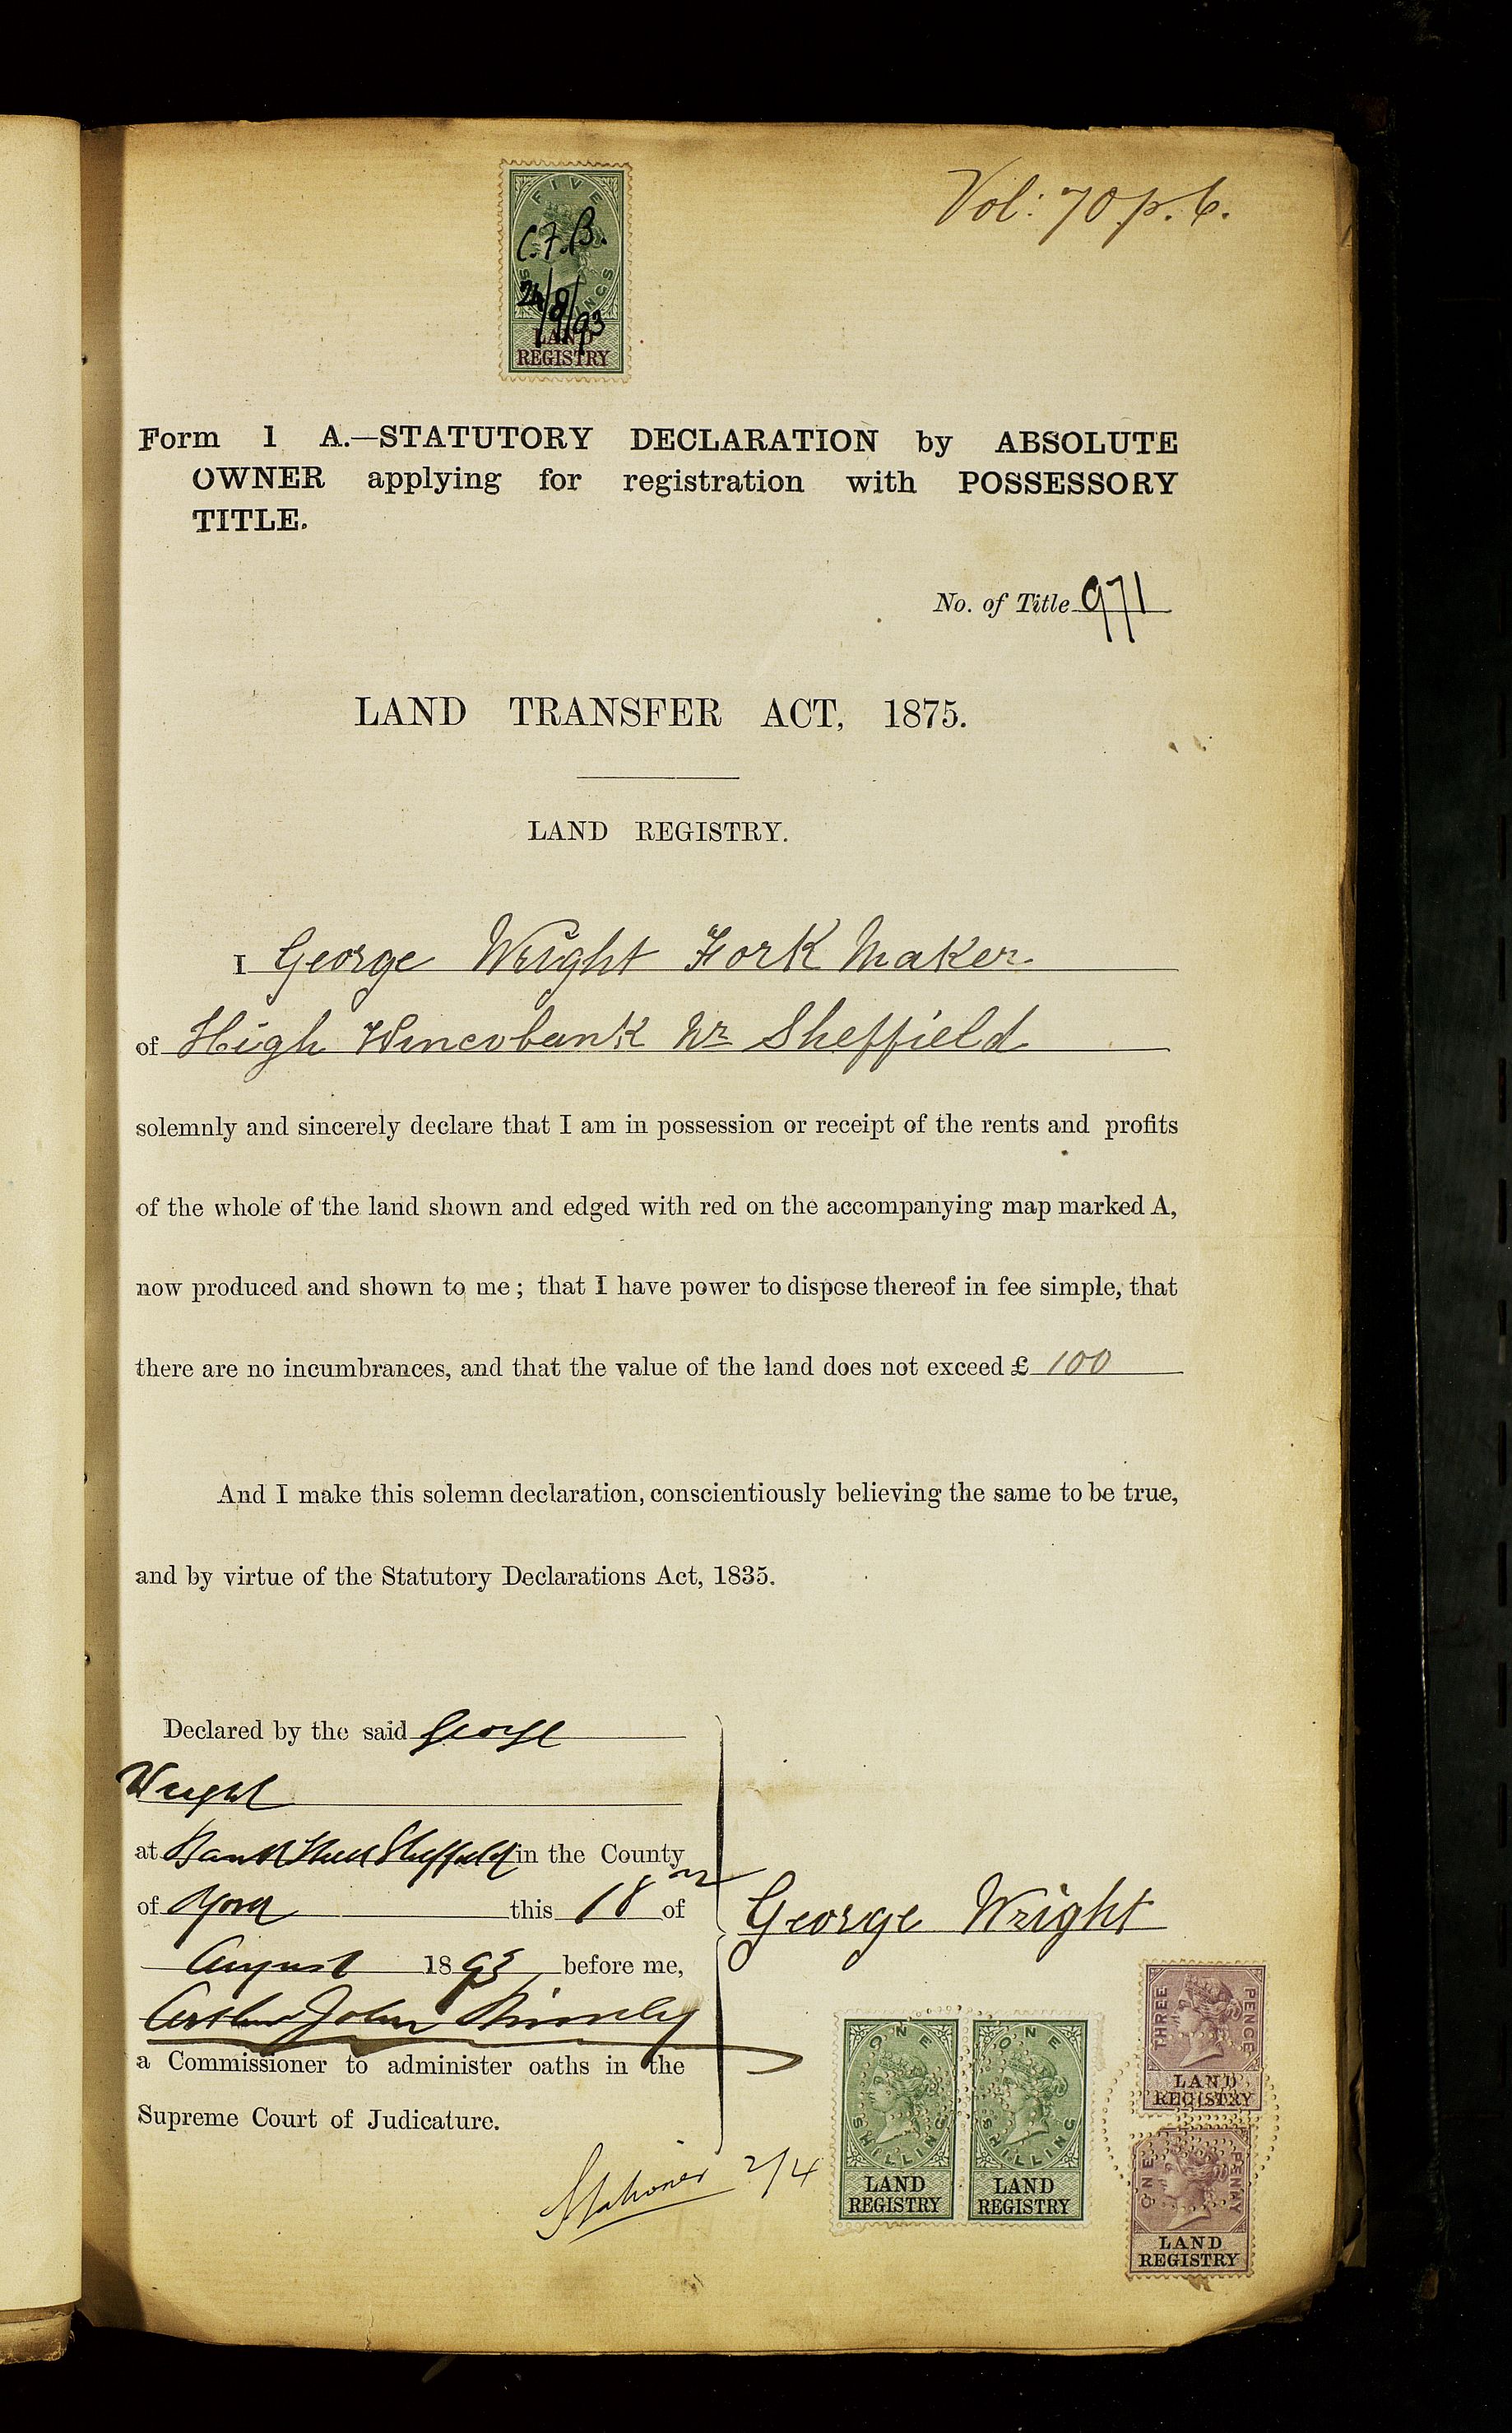 Vol: 70 p. 6.
FIVE SHILLINGS
C.F.B.
24/8/93
LAND
REGISTRY
Form 1 A.—STATUTORY DECLARATION by ABSOLUTE
OWNER applying for registration with POSSESSORY
TITLE.
No. of Title 971
LAND TRANSFER ACT, 1875.
LAND REGISTRY.
I George Wright Fork Maker
of High Wincobank Nr Sheffield
solemnly and sincerely declare that I am in possession or receipt of the rents and profits
of the whole of the land shown and edged with red on the accompanying map marked A,
now produced and shown to me; that I have power to dispose thereof in fee simple, that
there are no incumbrances, and that the value of the land does not exceed £ 100
And I make this solemn declaration, conscientiously believing the same to be true,
and by virtue of the Statutory Declarations Act, 1835.
Declared by the said George
Wright
at Bank Street Sheffield in the County
of York this 18th of
August 1893 before me,
Arthur John
a Commissioner to administer oaths in the
Supreme Court of Judicature.
George Wright
2/4
ONE SHILLING
LAND
REGISTRY
ONE SHILLING
LAND
REGISTRY
THREE PENCE
LAND
REGISTRY
ONE PENNY
LAND
REGISTRY